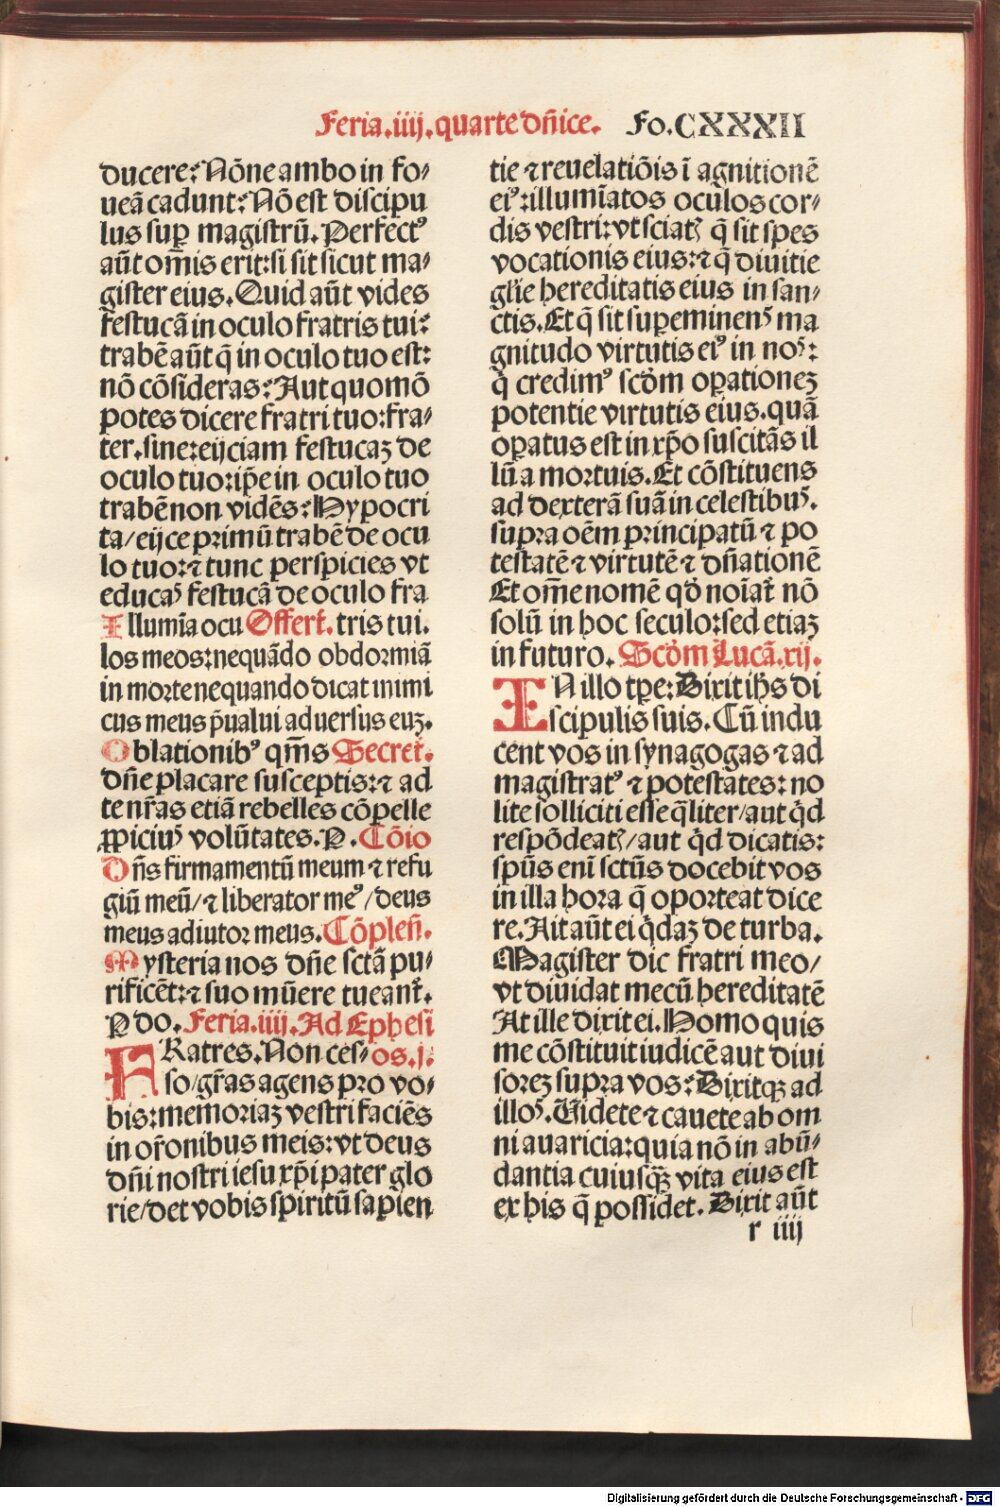 Feria.iiij.quarte dñice. Fo.CXXXII
ducere: Nõne ambo in fo⸗
ueã cadunt: Nõ est discipu
lus sup̱ magistrũ. Perfectꝰ
aũt om̃is erit: si sit sicut ma⸗
gister eius. Quid aũt vides
festucã in oculo fratris tui:
trabẽ aũt q̃ in oculo tuo est:
nõ cõsideras: Aut quomõ
potes dicere fratri tuo: fra⸗
ter. sine: eijciam festucaꝫ de
oculo tuo: ip̃e in oculo tuo
trabẽ non vidẽs: Hypocri
ta/ eijce primũ trabẽ de ocu
lo tuo: ⁊ tunc perspicies vt
educaꝭ festucã de oculo fra
Illumĩa ocu Offert̃. tris tui.
los meos: nequãdo obdormiã
in morte nequando dicat inimi
cus meus p̃ualui aduersus euꝫ.
Oblationibꝰ qm̃s Secret̃.
dñe placare susceptis: ⁊ ad
te nr̃as etiã rebelles cõpelle
ꝓpiciꝰ volũtates. P. Cõio
Dñs firmamentũ meum ⁊ refu
giũ meũ/ ⁊ liberator meꝰ/ deus
meus adiutor meus. Cõpleñ.
Mysteria nos dñe sctã pu⸗
rificẽt: ⁊ suo mũere tueant̃.
P do. Feria.iiij. Ad Ephesi
FRatres. Non ces⸗ os.j.
so/ gr̃as agens pro vo⸗
bis: memoriaꝫ vestri faciẽs
in or̃onibus meis: vt deus
dñi nostri iesu xp̃i pater glo
rie/ det vobis spiritũ sapien
tie ⁊ reuelatiõis ĩ agnitionẽ
eiꝰ: illumĩatos oculos cor⸗
dis vestri: vt sciatꝭ q̃ sit spes
vocationis eius: ⁊ q̃ diuitie
gl̃ie hereditatis eius in san⸗
ctis. Et q̃ sit sup̱eminenꝭ ma
gnitudo virtutis eiꝰ in noꝭ:
q̇ credimꝰ scd̃m op̱ationeꝫ
potentie virtutis eius. quã
op̱atus est in xp̃o suscitãs il
lũ a mortuis. Et cõstituens
ad dexterã suã in celestibꝰ.
supra oẽm principatũ ⁊ po
testatẽ ⁊ virtutẽ ⁊ dñationẽ
Et om̃e nomẽ qd̃ noĩat̃ nõ
solũ in hoc seculo: sed etiaꝫ
in futuro. Scd̃m Lucã.xij.
IN illo tp̃e: Dixit ih̃s di
scipulis suis. Cũ indu
cent vos in synagogas ⁊ ad
magistratꝰ ⁊ potestates: no
lite solliciti esse q̃liter/ aut q̇d
respõdeatꝭ/ aut q̇d dicatis:
spũs eni sctũs docebit vos
in illa hora q̃ oporteat dice
re. Ait aũt ei q̇daꝫ de turba.
Magister dic fratri meo/
vt diuidat mecũ hereditatẽ
At ille dixit ei. Homo quis
me cõstituit iudicẽ aut diui
soreꝫ supra vos: Dixitqꝫ ad
illoꝭ. Uidete ⁊ cauete ab om
ni auaricia: quia nõ in abũ⸗
dantia cuiusqꝫ vita eius est
ex his q̃ possidet. Dixit aũt
r iiij
Digitalisierung gefördert durch die Deutsche Forschungsgemeinschaft - DFG